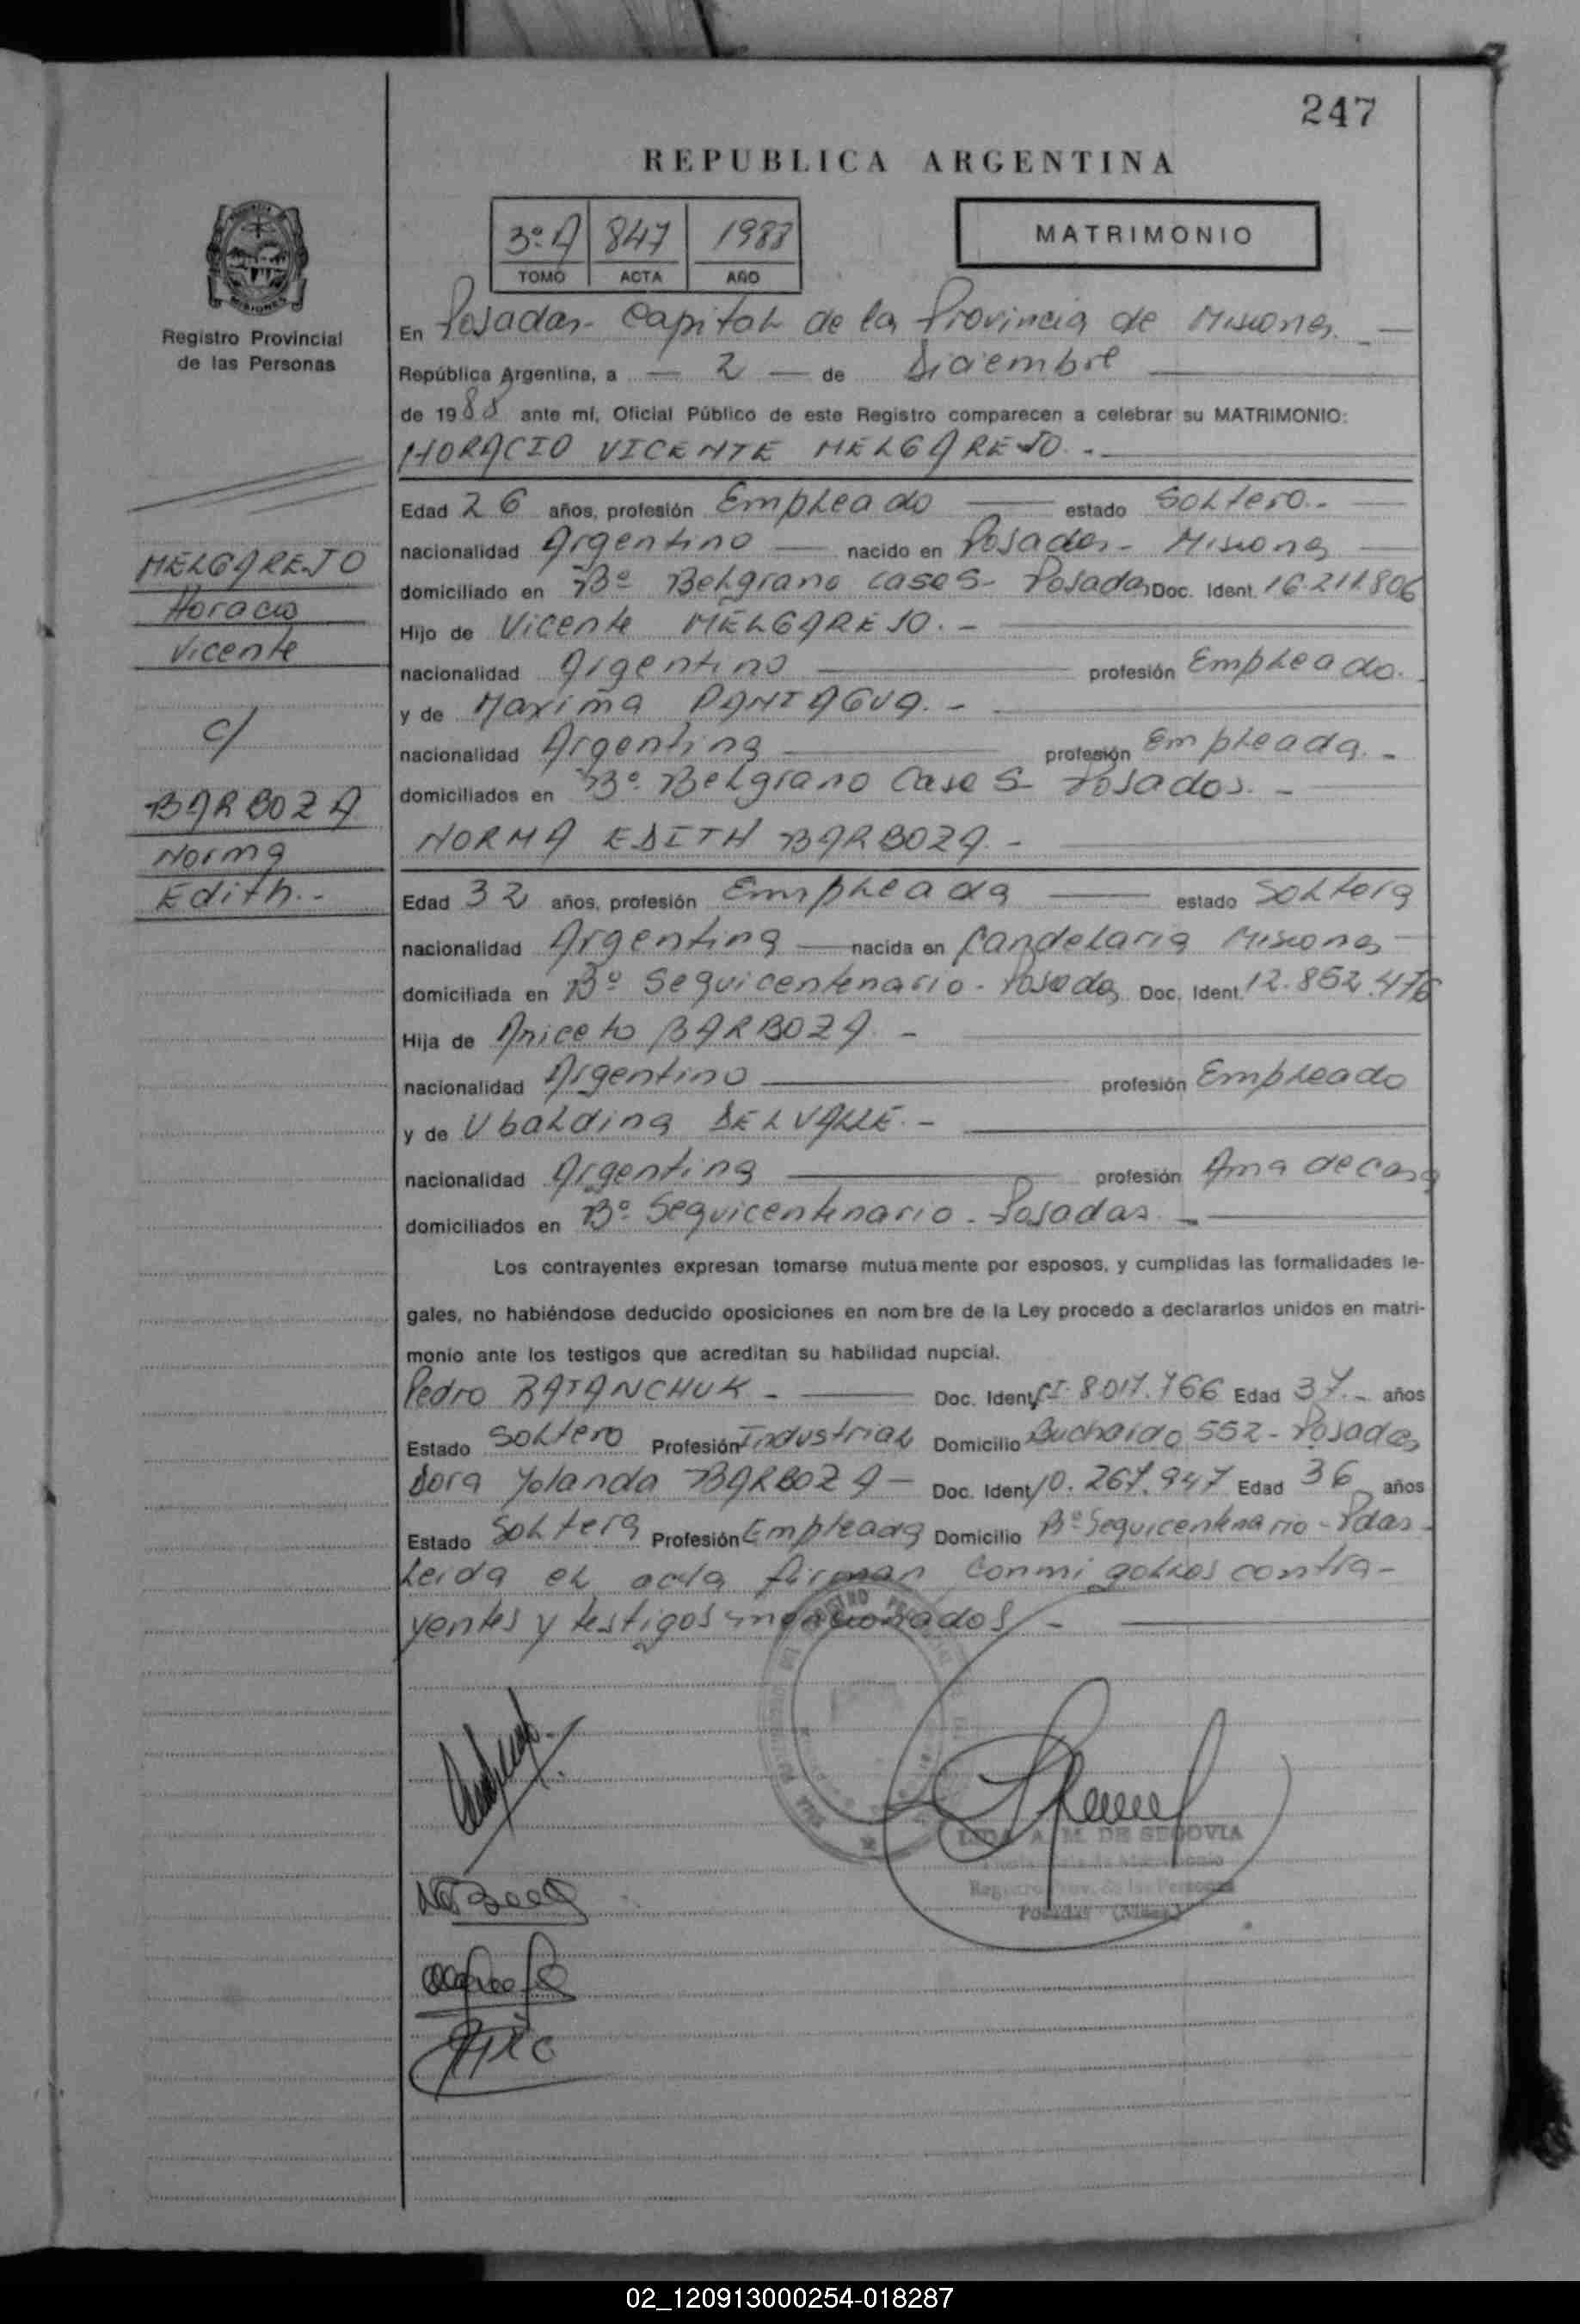 247
REPUBLICA ARGENTINA
3º A 847 1988
TOMO ACTA AÑO
MATRIMONIO
Registro Provincial
de las Personas
En Posadas - Capital de la Provincia de Misiones. -
República Argentina, a - 2 - de Diciembre
de 1988 ante mí, Oficial Público de este Registro comparecen a celebrar su MATRIMONIO:
HORACIO VICENTE MELGAREJO. -
Edad 26 años, profesión Empleado estado Soltero. -
nacionalidad Argentino nacido en Posadas - Misiones
domiciliado en Bº Belgrano casa 5 - Posadas Doc. Ident. 16.211.806
Hijo de Vicente MELGAREJO. -
nacionalidad Argentino profesión Empleado.
y de Maxima PANIAGUA. -
nacionalidad Argentina profesión Empleada. -
domiciliados en Bº Belgrano Casa 5 Posadas. -
NORMA EDITH BARBOZA. -
Edad 32 años, profesión Empleada estado Soltera
nacionalidad Argentina nacida en Candelaria Misiones
domiciliada en Bº Sequicentenario - Posadas Doc. Ident. 12.852.476
Hija de Aniceto BARBOZA. -
nacionalidad Argentino profesión Empleado
y de Ubaldina DELVALLE. -
nacionalidad Argentina profesión Ama de casa
domiciliados en Bº Sequicentenario - Posadas. -
Los contrayentes expresan tomarse mutuamente por esposos, y cumplidas las formalidades le-
gales, no habiéndose deducido oposiciones en nombre de la Ley procedo a declararlos unidos en matri-
monio ante los testigos que acreditan su habilidad nupcial.
Pedro BATANCHUK - Doc. Ident. CI. 8.017.766 Edad 37. - años
Estado Soltero Profesión Industrial Domicilio Buchardo 552 - Posadas
Dora Yolanda BARBOZA - Doc. Ident. 10.267.947 Edad 36 años
Estado Soltera Profesión Empleada Domicilio Bº Sequicentenario - Pdas -
Leida el acta firman conmigo los contra-
yentes y testigos mencionados -
MELGAREJO
Horacio
Vicente
c/
BARBOZA
Norma
Edith. -
A. M. DE SEGOVIA
Registro Prov. de las Personas
Posadas (Mnes.)
02_120913000254-018287